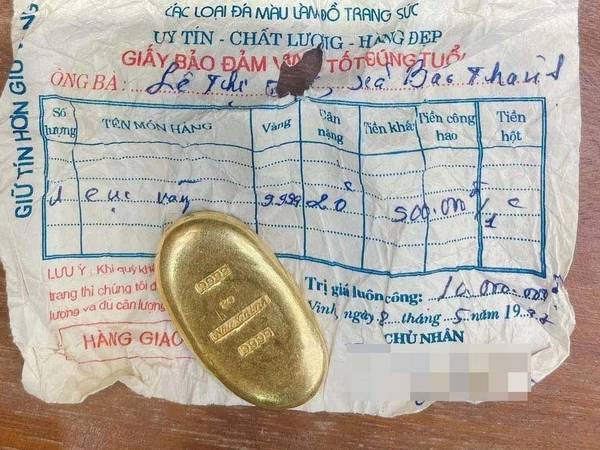 CÁC LOẠI ĐÁ MÀU LÀM ĐỒ TRANG SỨC
UY TÍN - CHẤT LƯỢNG - HÀNG ĐẸP
GIẤY BẢO ĐẢM TỐT ĐÚNG TUỔI
ÔNG BÀ: Lê Thị xã
GIỮ TÍN HƠN GIỮ
Số lượng
TÊN MÓN HÀNG
Vàng
Cân nặng
Tiền khắc
Tiền công hao
Tiền hột
1 cục vàng 9999 20c 500.000đ/1c
9999
9999
LƯU Ý : Khi quý khá
trang thì chúng tôi đ
lượng và dư cân lượng
HÀNG GIAO
Trị giá luôn công: 10.000.000đ
Vinh, ngày 8 tháng 5 năm 19
CHỦ NHÂN